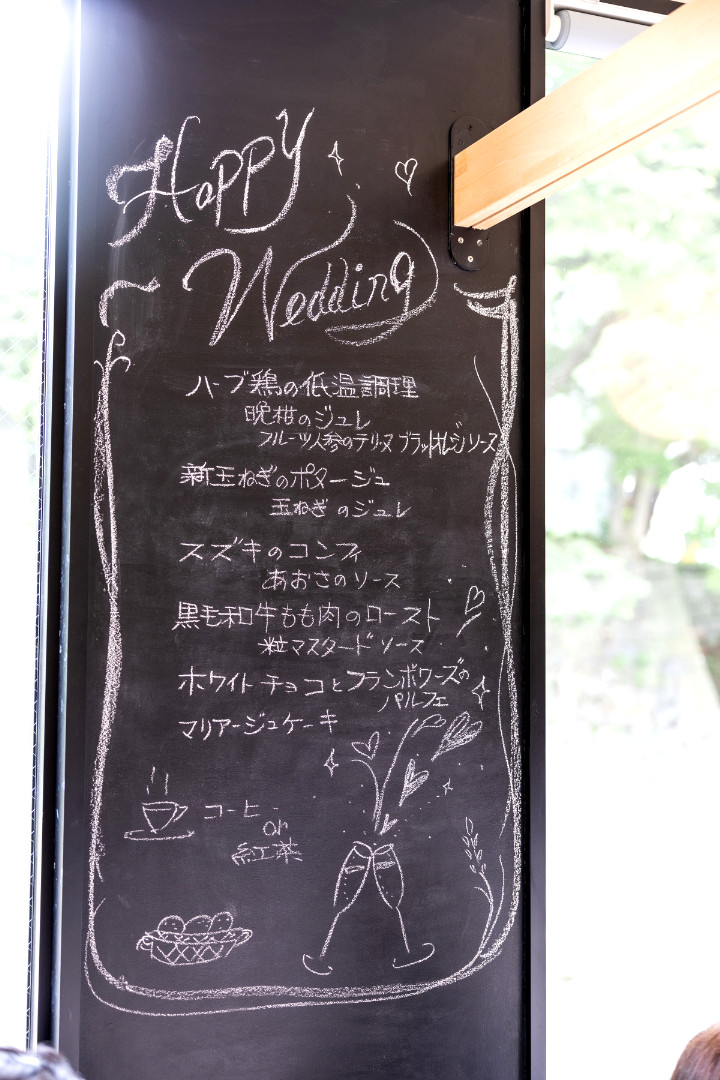 Happy
Wedding
ハーブ鶏の低温調理
晩柑のジュレ
フルーツ人参のテリーヌ ブラッドオレンジソース
新玉ねぎのポタージュ
玉ねぎのジュレ
スズキのコンフィ
あおさのソース
黒毛和牛もも肉のロースト
粒マスタードソース
ホワイトチョコとフランボワーズの
パルフェ
マリアージュケーキ
コーヒー
or
紅茶